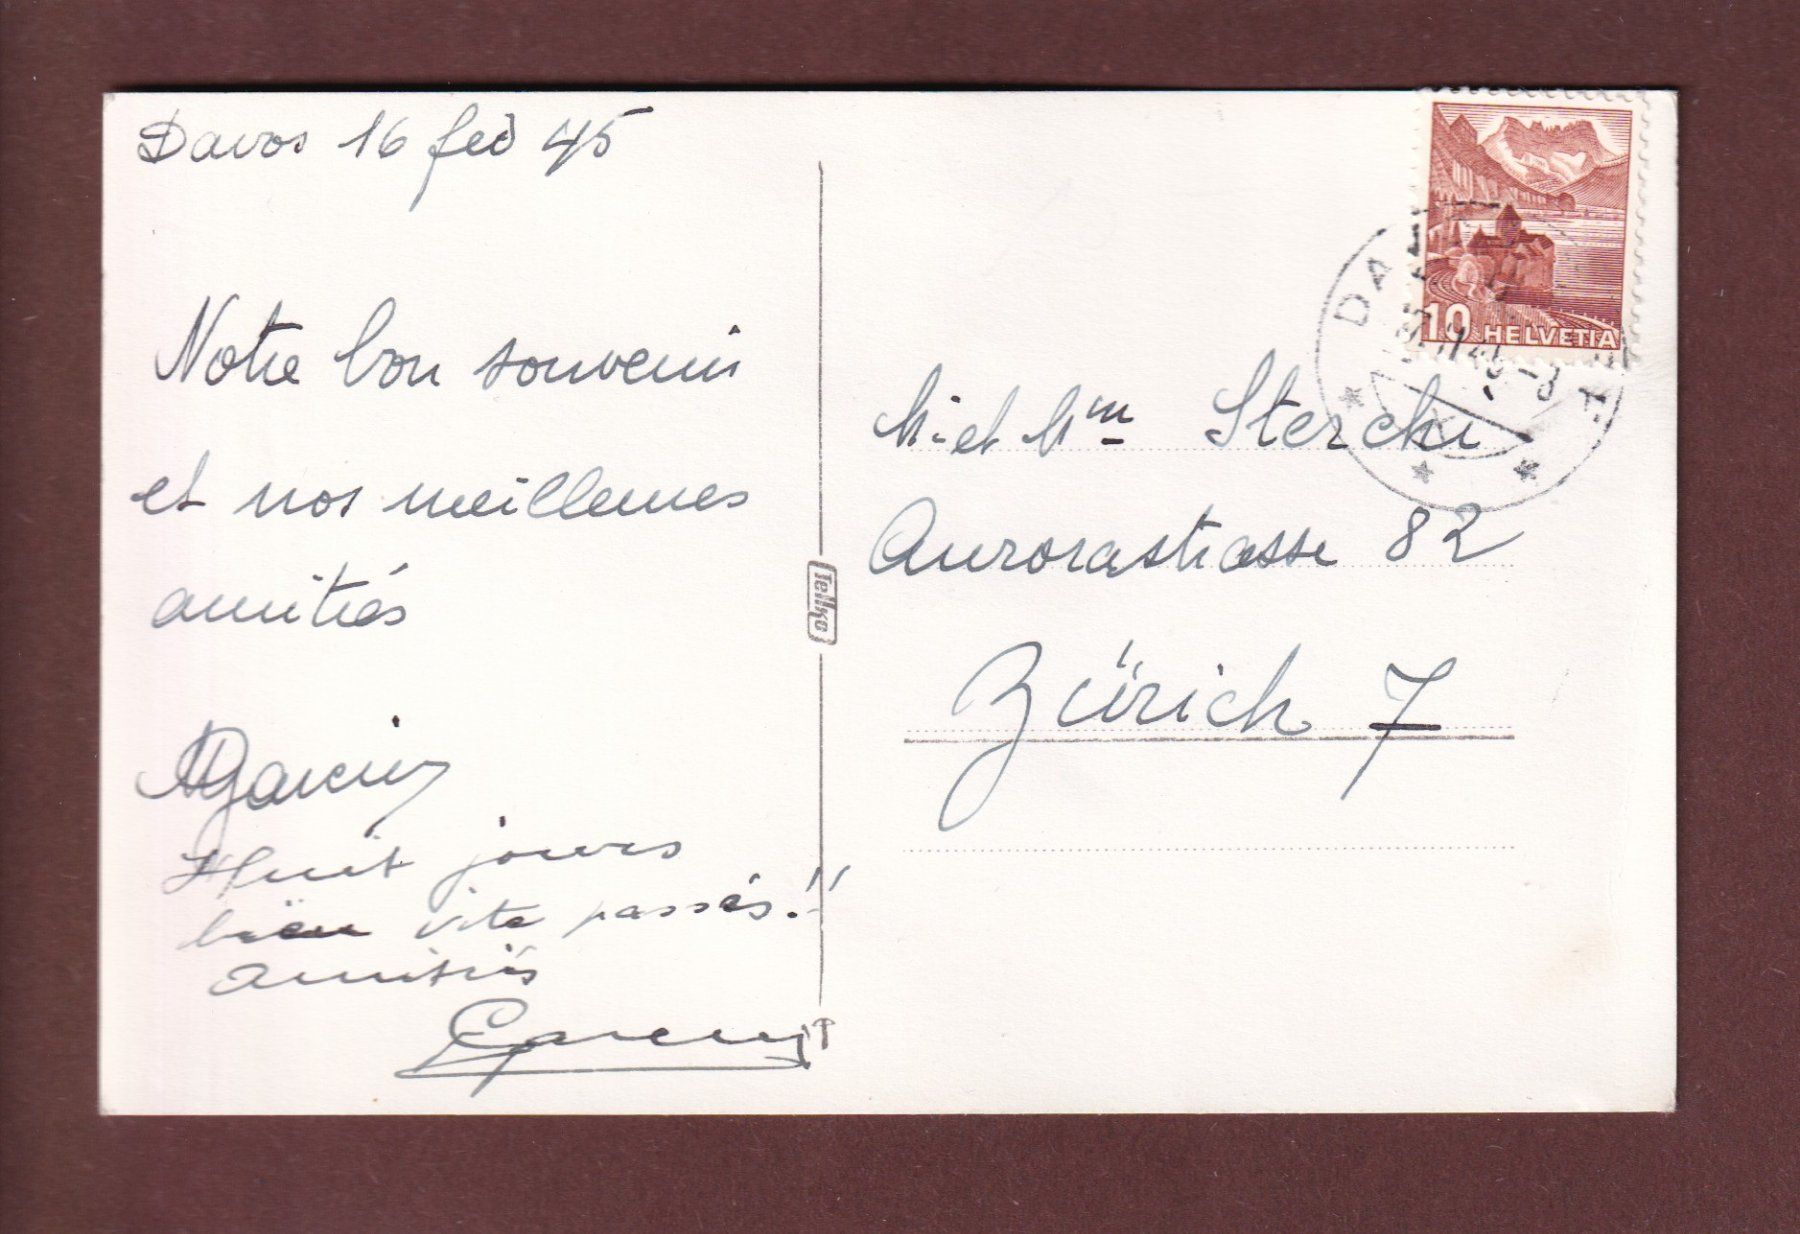 Davos 16 feb 45
Notre bon souvenir
et nos meilleures
amitiés
Huit jours
bien vite passés!!
amitiés
Telko
10 HELVETIA
M. et Mme Sterchi
Aurorastrasse 82
Zürich 7